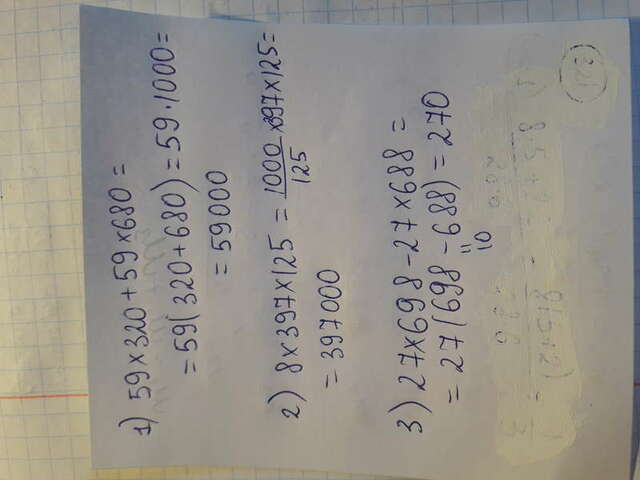 1) 59×320+59×680=
=59(320+680)=59·1000=
=59000
2) 8×397×125=1000/125×397×125=
=397000
3) 27×698-27×688=
=27(698-688)=270
"
10